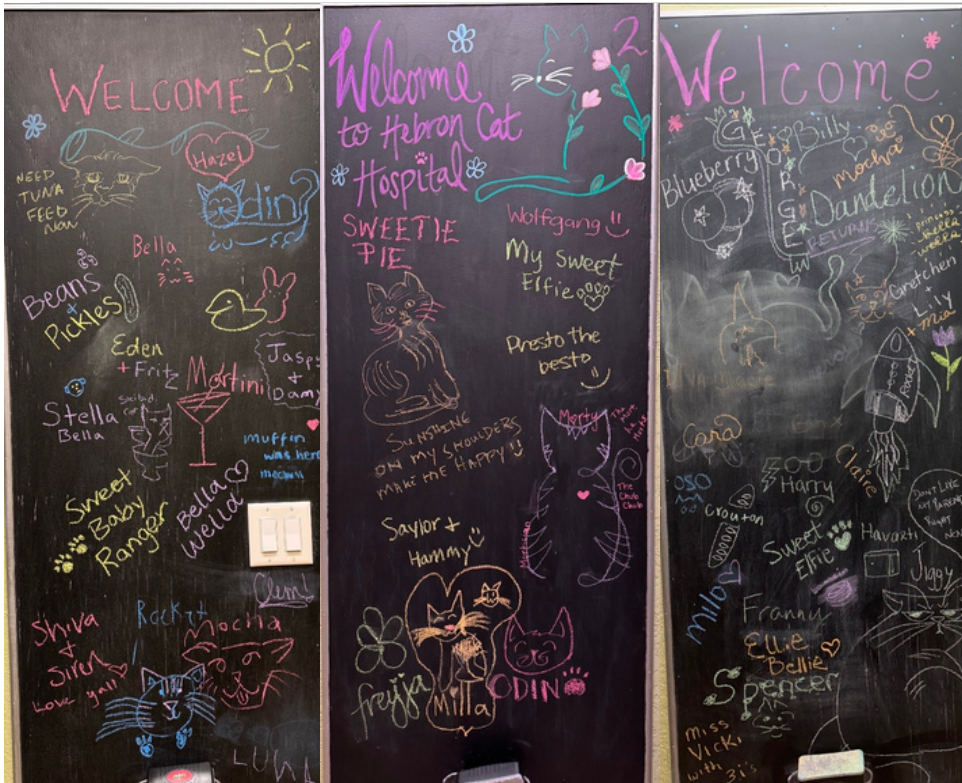 WELCOME
Hazel
NEED
TUNA
FEED
NOW
Odin
Bella
Beans
+
Pickles
Eden
+ Fritz
Martini
Jasp
+
Damy
Stella
Bella
muffin
was here
meow!!
Sweet
Baby
Ranger
Bella
Wella
Clem!
Shiva
+
Siren
Love y'all
Rocket
Mocha
LUNA
Welcome
to Hebron Cat
Hospital
2
SWEETIE
PIE
Wolfgang
My sweet
Elfie
Presto the
besto
SUNSHINE
ON MY SHOULDERS
MAKE ME HAPPY!!
Morty
The Mort
Mortician
The Chub
Chub
Saylor +
Hammy
freyja
Milla
ODIN
Welcome
GEORGE
Billy
Mocha
Blueberry
Dandelion
RETURNS
princess
Gretchen
+
Lily
+ Mia
Rocket
Cara
Claire
Harry
OSO
Crouton
DON'T LIKE
MY PARENTS
RIGHT
NOW
Sweet
Elfie
Havarti
Jiggy
milo
Franny
Ellie
Bellie
Spencer
miss
Vicki
with 3 i's